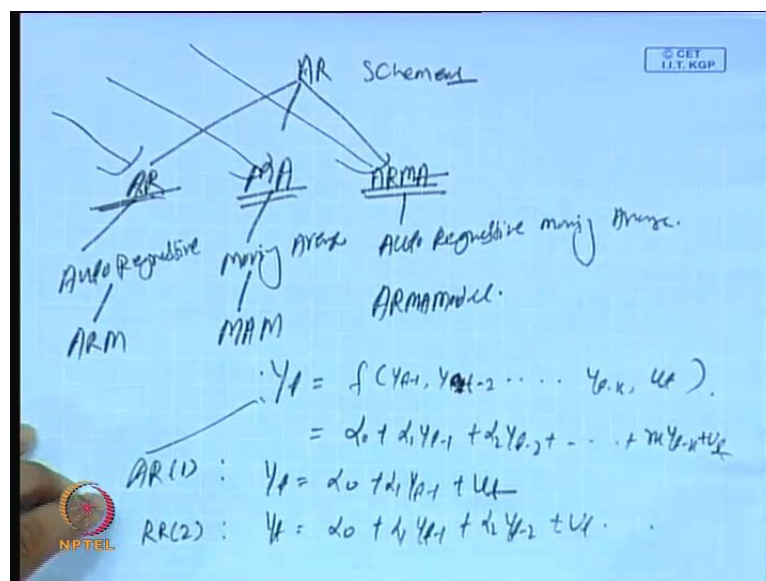 AR Schemes
© CET
I.I.T. KGP
AR MA ARMA
Auto Regressive Moving Average Auto Regressive Moving Average.
ARM MAM ARMA Model.
Yt = f(Yt-1, Yt-2 .... Yt-k, Ut).
= α0 + α1 Yt-1 + α2 Yt-2 + - .. + Yt-k + Ut
AR(1) : Yt = α0 + α1 Yt-1 + Ut
AR(2) : Yt = α0 + α1 Yt-1 + α2 Yt-2 + Ut .
NPTEL